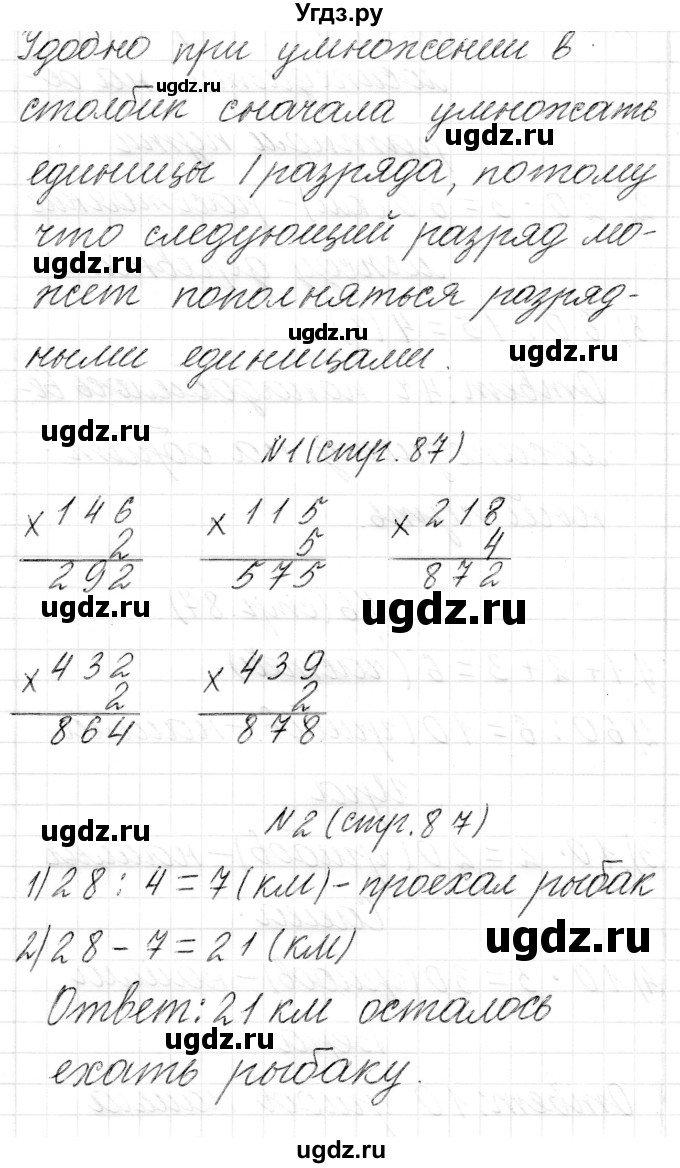 Угдз.ру
Удобно при умножении в
ugdz.ru
столбик сначала умножать
единицы 1 разряда, потому
что следующий разряд мо-
ugdz.ru
жет пополняться разряд-
ugdz.ru
ugdz.ru
ными единицами.
ugdz.ru
N1 (стр. 87)
×146 ×115 ×218
2 5 4
292 575 872
ugdz.ru ugdz.ru
×432 ×439
2 2
864 878
N2 (стр. 87)
ugdz.ru
1) 28 : 4 = 7 (км) - проехал рыбак
2) 28 - 7 = 21 (км)
ugdz.ru
Ответ: 21 км осталось
ugdz.ru
ехать рыбаку.
ugdz.ru